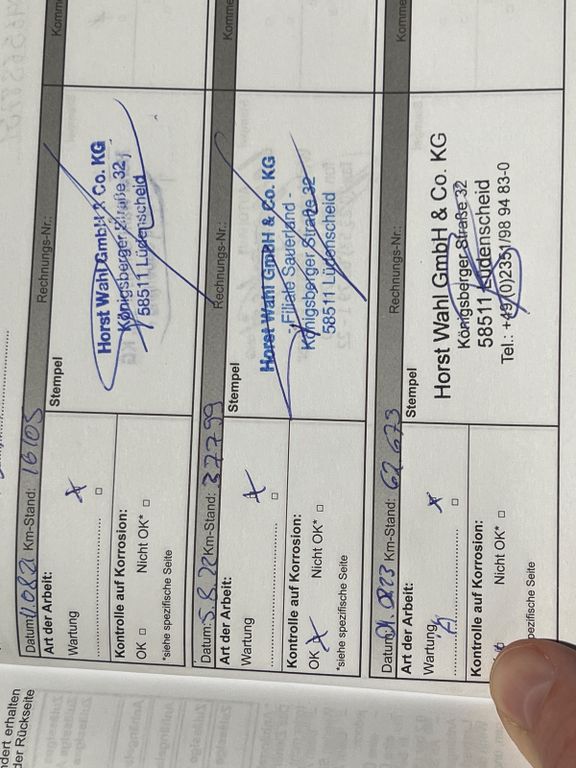 Datum: Km-Stand: 16105
Rechnungs-Nr.:
Komme
Art der Arbeit:
Stempel
Wartung
Horst Wahl GmbH & Co. KG
Königsberger Straße 32,
58511 Lüdenscheid
Kontrolle auf Korrosion:
OK □ Nicht OK* □
*siehe spezifische Seite
Datum: 5.8.22 Km-Stand: 37799
Rechnungs-Nr.:
Komme
Art der Arbeit:
Stempel
Wartung
Horst Wahl GmbH & Co. KG
- Filiale Sauerland -
Königsberger Straße 32
58511 Lüdenscheid
Kontrolle auf Korrosion:
OK Nicht OK* □
*siehe spezifische Seite
Datum: Km-Stand: 62 673
Rechnungs-Nr.:
Komme
Art der Arbeit:
Stempel
Wartung
Horst Wahl GmbH & Co. KG
Königsberger Straße 32
58511 Lüdenscheid
Tel.: +49(0)2351/98 94 83-0
Kontrolle auf Korrosion:
Nicht OK* □
pezifische Seite
ndert erhalten
der Rückseite